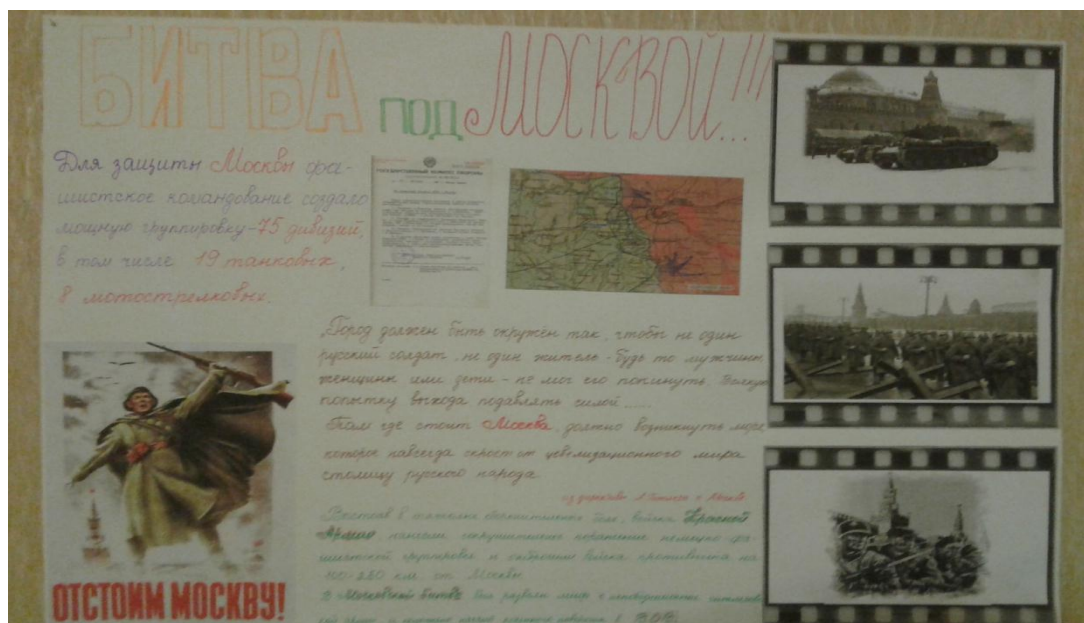 БИТВА ПОД МОСКВОЙ!!!...
Для защиты Москвы фа-
шистское командование создало
мощную группировку-75 дивизий,
в том числе 19 танковых,
8 мотострелковых.
ГОСУДАРСТВЕННЫЙ КОМИТЕТ ОБОРОНЫ
"Город должен быть окружён так, чтобы не один
русский солдат, не один житель - будь то мужчины,
женщины или дети - не мог его покинуть. Всякую
попытку выхода подавлять силой.....
Там где стоит Москва, должно возникнуть море
которое навсегда скроет от цивилизационного мира
столицу русского народа
из директивы
в тяжелых оборонительных боях, войска Красной
Армии нанесли сокрушительное поражение немецко-фа-
шистской группировке и отбросили войска противника на
100-250 км. от Москвы
В Московской битве был развеян миф о непобедимости
ОТСТОИМ МОСКВУ!